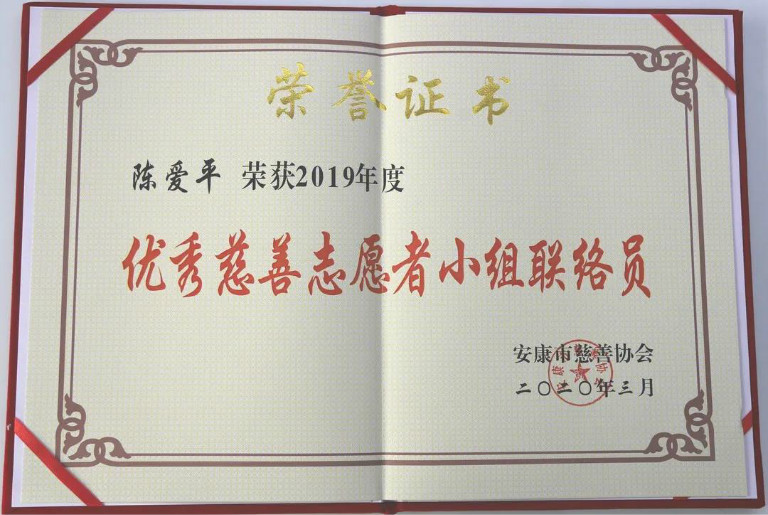 荣誉证书
陈爱平 荣获2019年度
优秀慈善志愿者小组联络员
安康市慈善协会
二〇二〇年三月